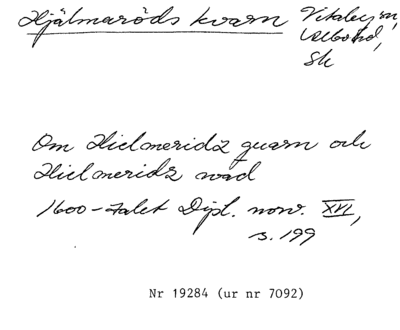 Hjälmaröds kvarn Vitaby sn,
Albo hd,
Sk
Om Hielmeridz quarn och
Hielmeridz wad
1600-talet Dipl. norv. XVI,
s. 199
Nr 19284 (ur nr 7092)